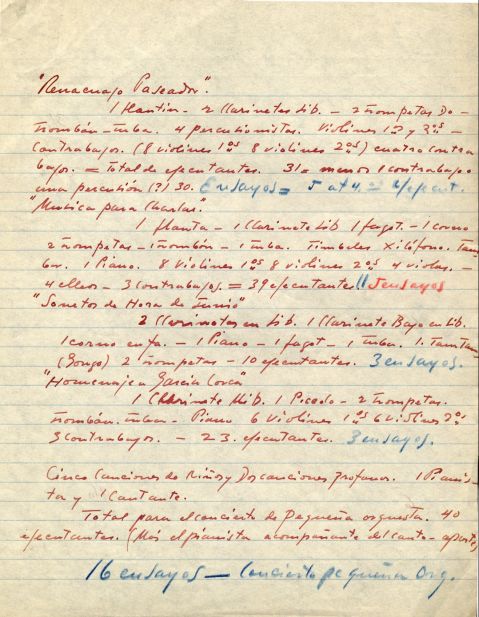 "Renacuajo Paseador".
1 Flautin - 2 Clarinetes Sib. - 2 Trompetas Do -
Trombón - Tuba. 4 percusionistas. Violines 1os y 2os -
Contrabajos. (8 violines 1os 8 violines 2os) cuatro contra
bajos. = Total de ejecutantes. 31 = menos 1 contrabajo
una percusión (?) 30. Ensayos = 5 a 4.
"Musica para Charlar".
1 flauta - 1 Clarinete Sib 1 fagot. - 1 corno
2 trompetas - 1 trombón - 1 tuba. Timbales Xilófono. Tam
bor. 1 Piano. 8 Violines 1os 8 violines 2os 4 violas. -
4 cellos - 3 contrabajos. = 39 ejecutantes 5 ensayos
"Sonetos de Hora de Junio"
2 Clarinetes en Sib. 1 Clarinete Bajo en Sib.
1 corno en fa. - 1 Piano - 1 fagot - 1 tuba. 1. Tam Tam
(Gongo) 2 Trompetas - 10 ejecutantes. 3 ensayos.
"Homenaje a García Lorca"
1 Clarinete Mib. 1 Picolo - 2 Trompetas.
Trombón. Tuba - Piano 6 Violines 1os 6 violines 2os
3 contrabajos. - 23. ejecutantes. 3 ensayos.
Cinco Canciones de Niños y Dos canciones profanas. 1 Pianis
ta y 1 Cantante.
Total para el concierto de Pequeña orquesta. 40
ejecutantes. (Más el pianista acompañante del canto - aparte)
16 ensayos - Concierto pequeña Orq.